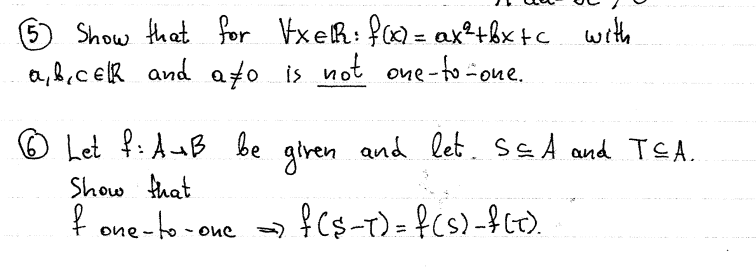 ⑤ Show that for ∀x∈ℝ: f(x) = ax²+bx+c with
a,b,c∈ℝ and a≠0 is not one-to-one.
⑥ Let f: A→B be given and let S⊆A and T⊆A.
Show that
f one-to-one ⇒ f(S-T) = f(S)-f(T).